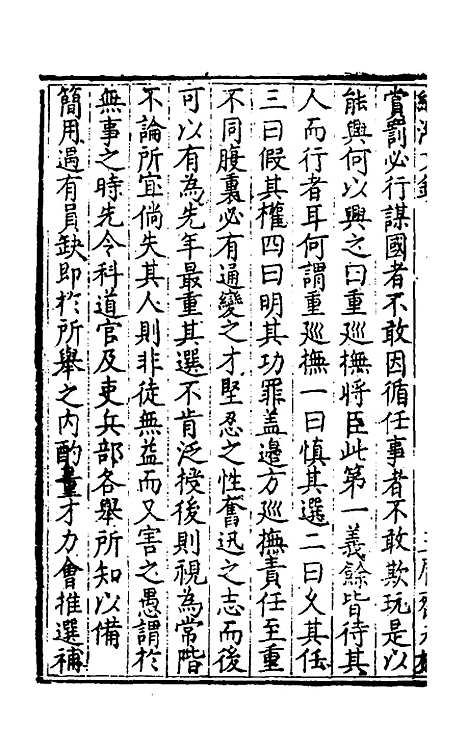 賞罰必行謀國者不敢因循任事者不敢欺玩是以
能興何以興之曰重廵撫將臣此第一義餘皆待其
人而行者耳何謂重廵撫一曰慎其選二曰久其任
三曰假其權四曰明其功罪盖邉方廵撫責任至重
不同腹裏必有通變之才堅忍之性奮迅之志而後
可以有為先年最重其選不肯泛授後則視為常階
不論所宜倘失其人則非徒無益而又害之愚謂於
無事之時先令科道官及吏兵部各舉所知以備
簡用遇有員缺即於所舉之内酌量才力會推選補